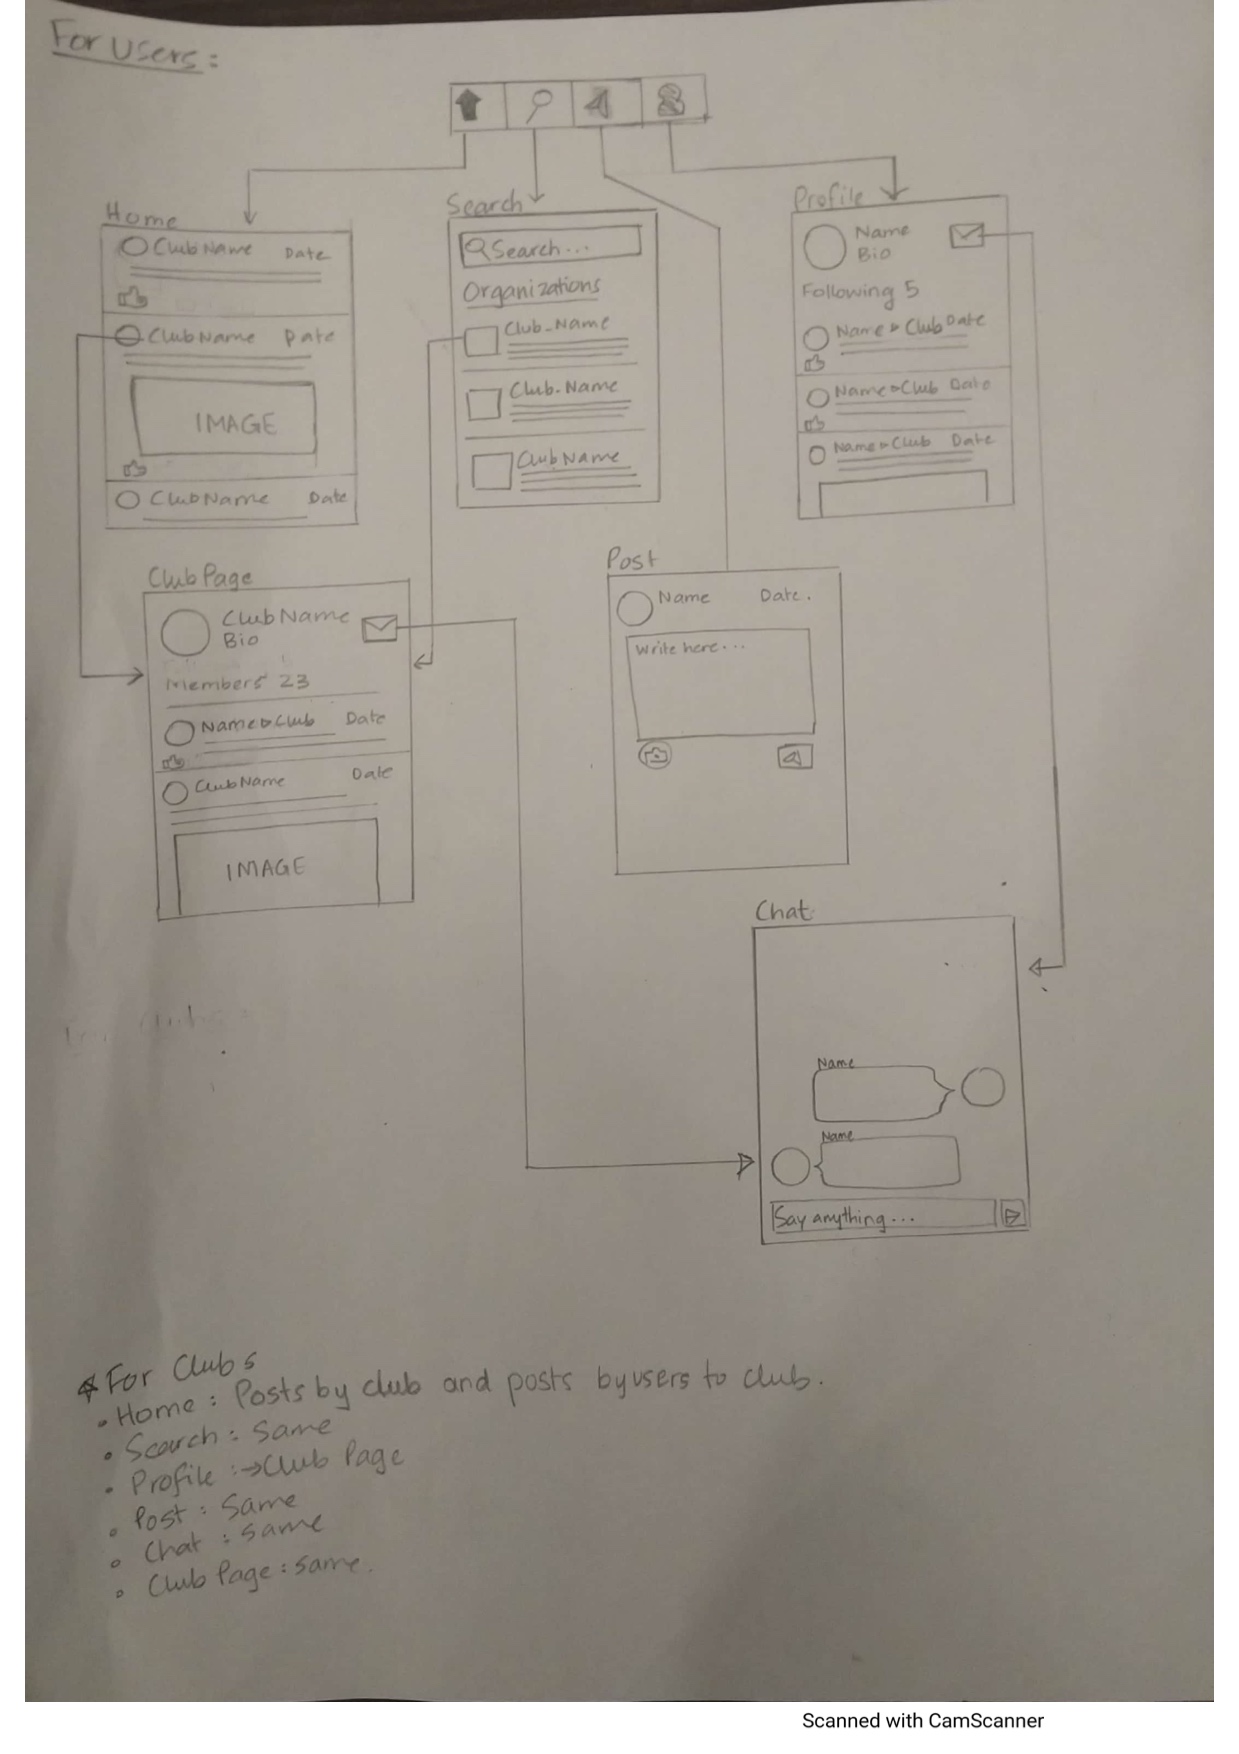 For Users:
Home
ClubName Date
ClubName Date
IMAGE
ClubName Date
Search
Search...
Organizations
Club-Name
Club-Name
ClubName
Profile
Name
Bio
Following 5
Name▹Club Date
Name▹Club Date
Name▹Club Date
Club Page
ClubName
Bio
Members 23
Name▹Club Date
ClubName Date
IMAGE
Post
Name Date.
Write here...
Chat
Name
Name
Say anything...
For Clubs
• Home: Posts by club and posts by users to club.
• Search: Same
• Profile:→Club Page
• Post: Same
• Chat: Same
• Club Page: same.
Scanned with CamScanner